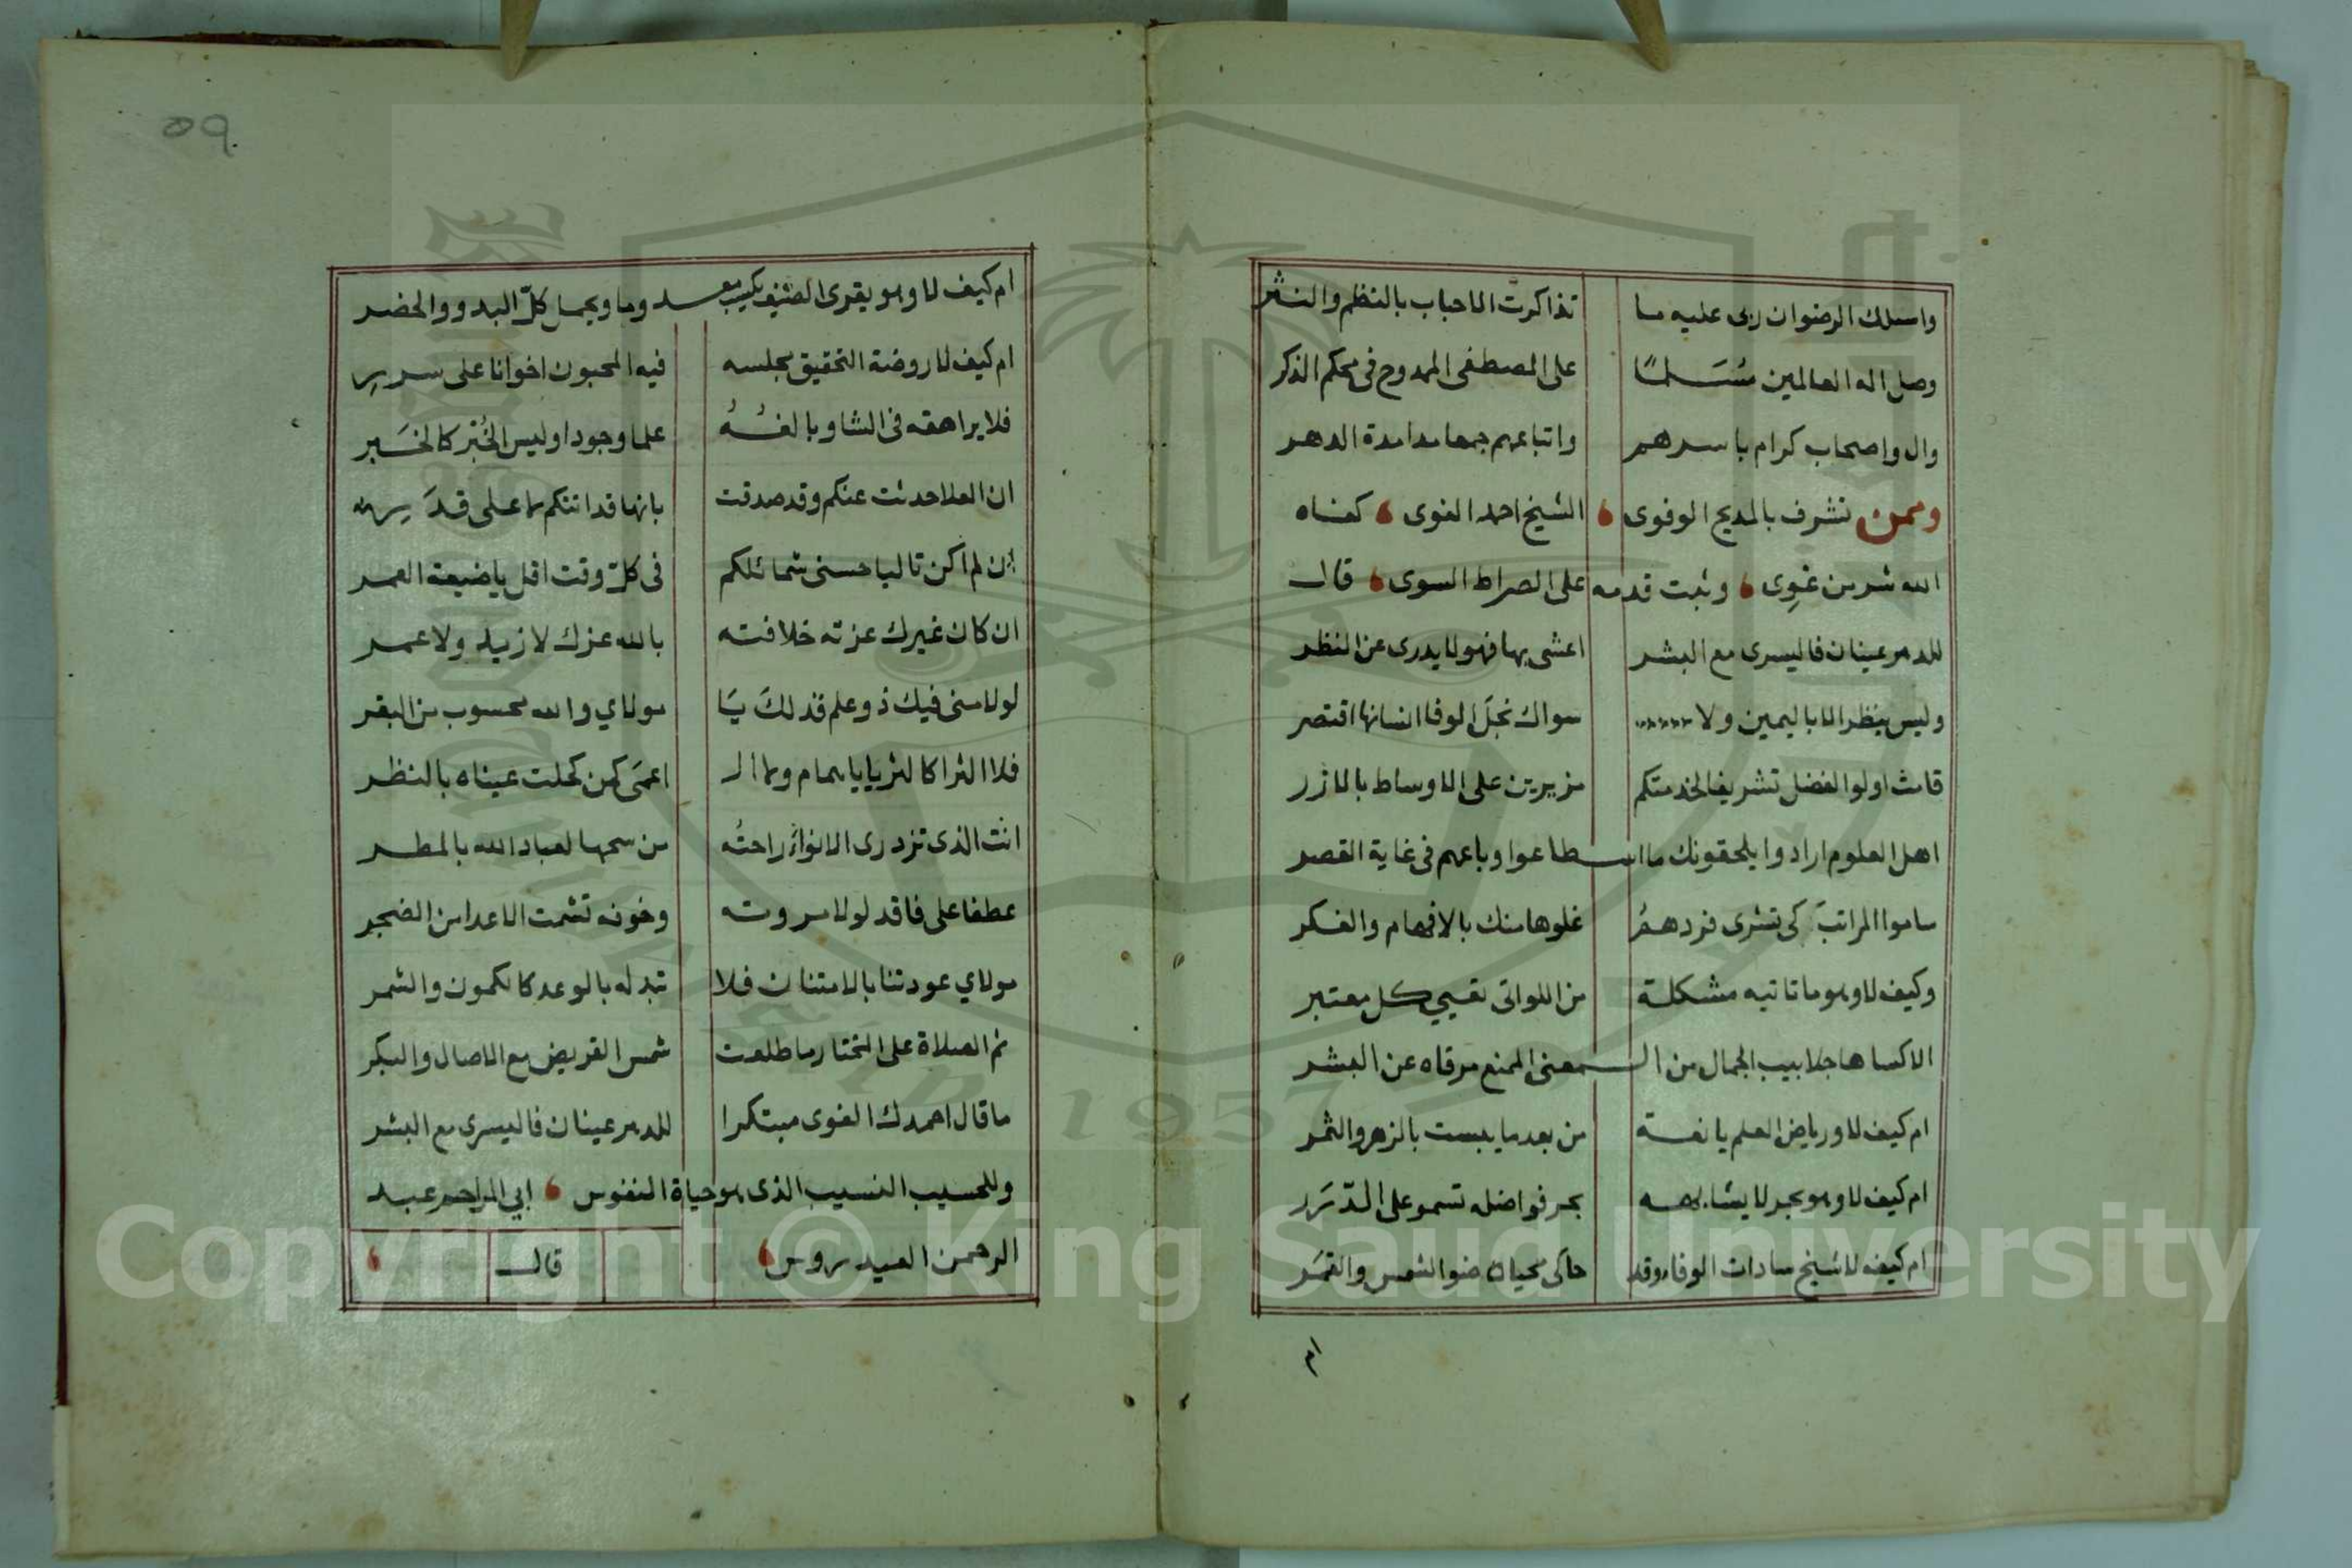 واسلك الرضوان ربى عليه ما تذاكرت الاحباب بالنظم والنثر
وصل اله العالمين مسلما على المصطفى الممدوح فى محكم الذكر
وال واصحاب كرام باسرهم واتباعهم جمعا مدا مدة الدهر
وممن تشرف بالمديح الوفوى الشيخ احمد الغوى كفاه
الله شر من غوِى وثبت قدمه على الصراط السوى قال
للدهر عينان فاليسرى مع البشر اعشى بها فهو لا يدرى عن النظر
وليس ينظر الا باليمين ولا سواك نجل الوفا انسانها اقتصر
قامت اولوا الفضل تشريفا لخدمتكم مزيرين على الاوساط بالازر
اهل العلوم ارادوا يلحقونك ما اسطاعوا وباعهم فى غاية القصر
ساموا المراتبَ كى تشرى فزدهمُ غلوها منك بالافهام والفكر
وكيف لا وهو ما تاتيه مشكلة من اللواتى تعيي كل معتبر
الا كساها جلابيب الجمال من المعنى الممنع مرقاه عن البشر
ام كيف لا ورياض العلم يانعة من بعد ما يبست بالزهر والثمر
ام كيف لا وهو بحر لا يشابهه بحر فواضله تسمو على الدرر
ام كيف لا شيخ سادات الوفاء وقد حاكى محياه ضوا الشمس والقمَر
ام
59
ام كيف لا وهو يقرى الضيف يكسب معدوما ويحمل كلّ البدو والحضر
ام كيف لا روضة التحقيق مجلسه فيه المحبون اخوانا على سرر
فلا يراهقه فى الشاو بالغُهُ علما وجودا وليس الخُبْر كالخَبر
ان العلا حدثت عنكم وقد صدقت بانها قد اتتكم على قدَر
ان لم اكن تاليا حسنى شمائلكم فى كلّ وقت اقل يا ضيعة العمر
ان كان غيرك عزته خلافته بالله عزك لا زيد ولا عمر
لولا سنى فيك ذو علم قذلكَ يَا مولاي والله محسوب من البقر
فلا الثرا كالثريا يا همام ولا الـ اعمَى كمن كحلت عيناه بالنظر
انت الذى تزدرى الانواءَ راحتُه من سحها لعباد الله بالمطر
عطفا على فاقد لولا مروته وخوفه تشمت الاعدا من الضجر
مولاي عودتنا بالامتنان فلا تبدله بالوعد كالكمون والثمر
ثم الصلاة على المختار ما طلعت شمس القريض مع الاصال والبكر
ما قال احمدك الغوى مبتكرا للدهر عينان فاليسرى مع البشر
وللحسيب النسيب الذى هو حياة النفوس ابي المراحم عبد
الرحمن العيدروس قال
Copyright © King Saud University
1957